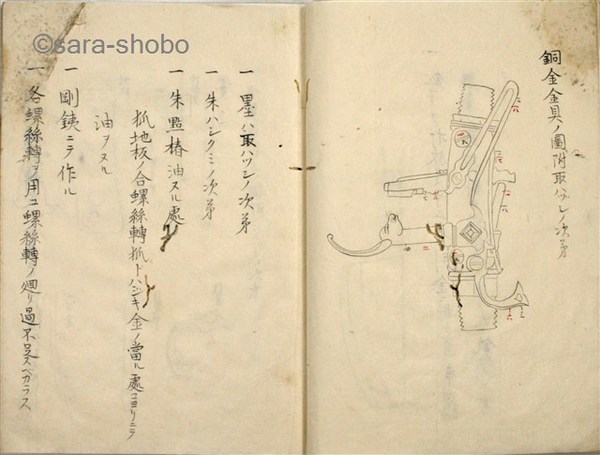 銅金金具ノ圖附取ハヅシノ次第
一 墨ハ取ハヅシノ次第
一 朱ハシクミノ次第
一 朱點椿油スル處
抓地板ノ合螺絲轉抓トハジキ金ノ當ル處コヨリニテ
油ヲスル
一 剛銕ニテ作ル
一 各螺絲轉ヲ用ユ螺絲轉ノ廻リ過不足スベカラス
©sara-shobo